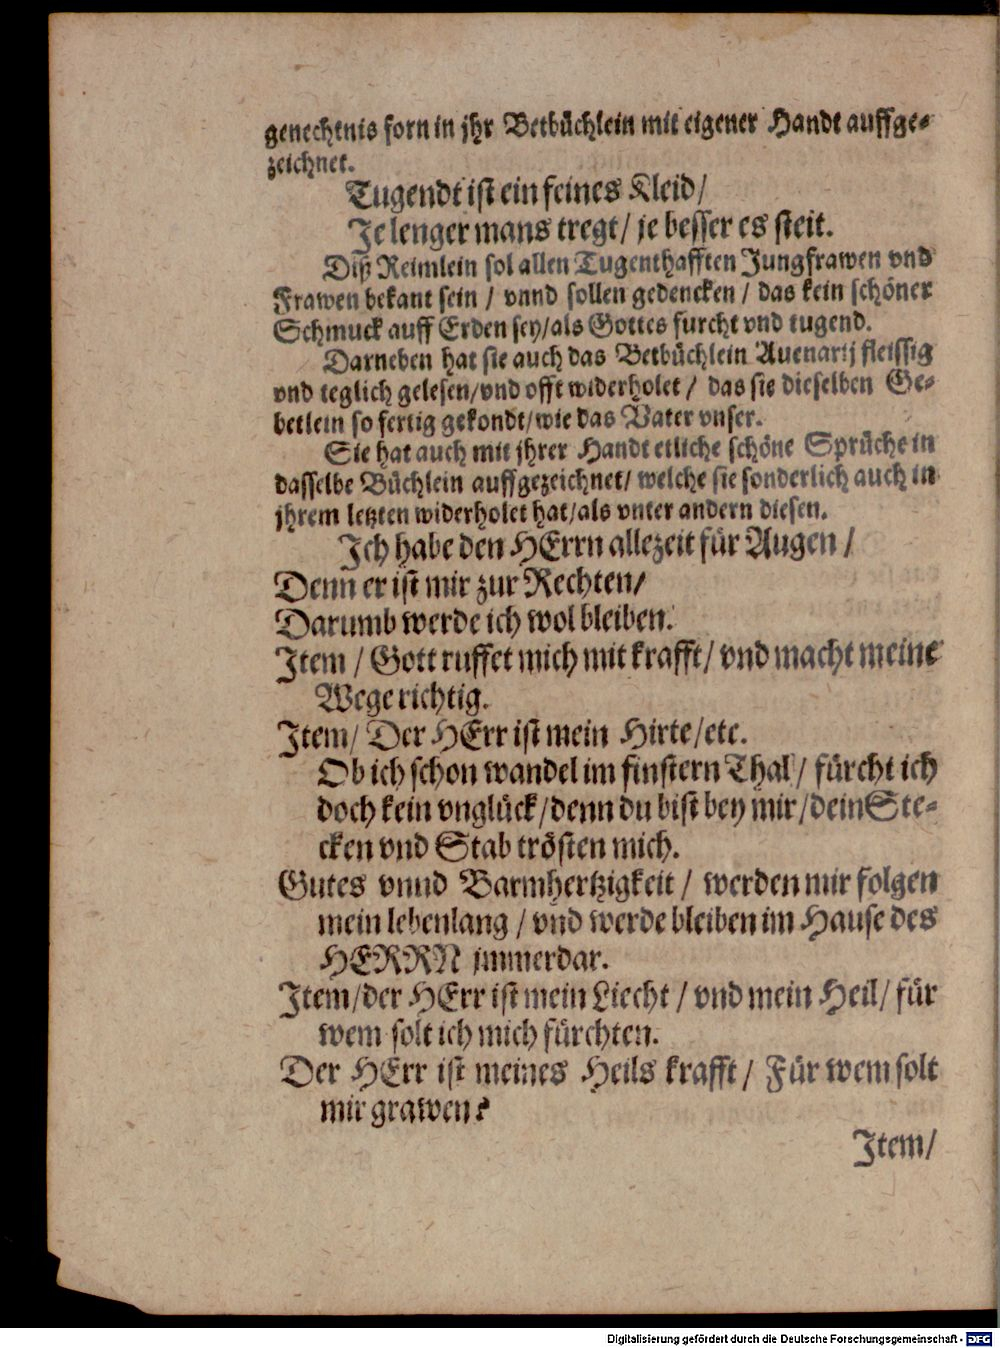 genechtnis forn in jhr Betbüchlein mit eigener Handt auffge-
zeichnet.
Tugendt ist ein feines Kleid/
Je lenger mans tregt/ je besser es steit.
Diß Reimlein sol allen Tugenthafften Jungfrawen vnd
Frawen bekant sein / vnnd sollen gedencken / das kein schöner
Schmuck auff Erden sey/als Gottes furcht vnd tugend.
Darneben hat sie auch das Betbüchlein Auenarij fleissig
vnd teglich gelesen/vnd offt widerholet / das sie dieselben Ge-
betlein so fertig gekondt/wie das Vater vnser.
Sie hat auch mit jhrer Handt etliche schöne Sprüche in
dasselbe Büchlein auffgezeichnet/ welche sie sonderlich auch in
jhrem letzten widerholet hat/als vnter andern diesen.
Ich habe den HErrn allezeit für Augen /
Denn er ist mir zur Rechten/
Darumb werde ich wol bleiben.
Item / Gott ruffet mich mit krafft/ vnd macht meine
Wege richtig.
Item/ Der HErr ist mein Hirte/etc.
Ob ich schon wandel im finstern Thal / fürcht ich
doch kein vnglück/denn du bist bey mir/dein Ste-
cken vnd Stab trösten mich.
Gutes vnnd Barmhertzigkeit / werden mir folgen
mein lebenlang / vnd werde bleiben im Hause des
HERRN jmmerdar.
Item/der HErr ist mein Liecht / vnd mein Heil/ für
wem solt ich mich fürchten.
Der HErr ist meines Heils krafft / Für wem solt
mir grawen?
Item/
Digitalisierung gefördert durch die Deutsche Forschungsgemeinschaft - DFG